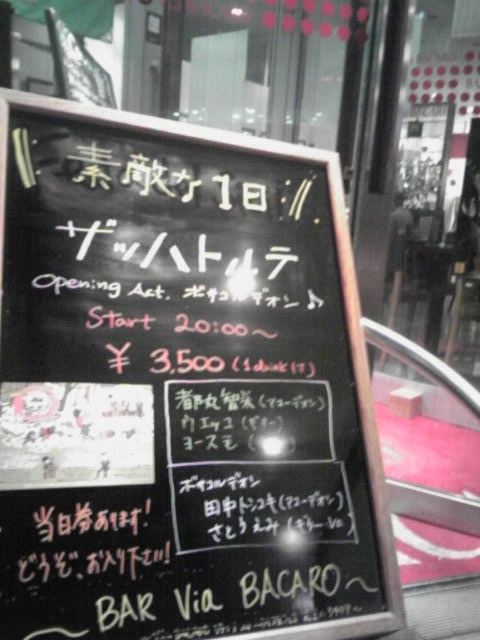 素敵な1日
ザッハトルテ
Opening Act. ボサコルデオン♪
Start 20:00〜
¥ 3,500 (1drink付)
都丸智栄 (アコーデオン)
ウエッコ (ギター)
ヨース毛
ボサコルデオン
田中トシユキ (アコーデオン)
さとうえみ (ギター・Vo)
当日券あります!
どうぞ、お入り下さい!
〜BAR Via BACARO〜
BACARO